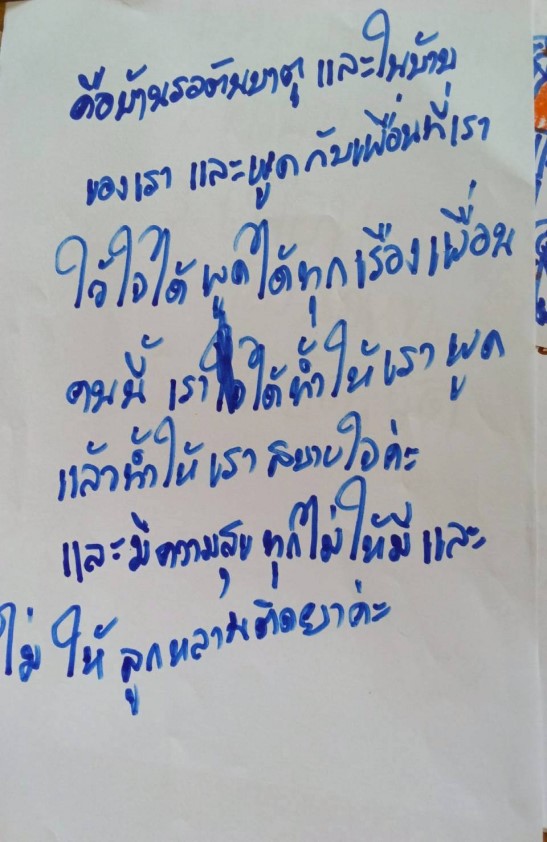 คือบ้านรอต้นบาตู และในบ้าน
ของเรา และพูดกับเพื่อนที่เรา
ใว้ใจได้ พูดได้ทุกเรื่องเพื่อน
คนนี้ เรา ได้ท้ำให้เรา พูด
แล้วท้ำให้เรา สบายใจค่ะ
และมีความสุข ทุกไม่ให้มี และ
ไม่ ให้ ลูกหลานติดยาค่ะ